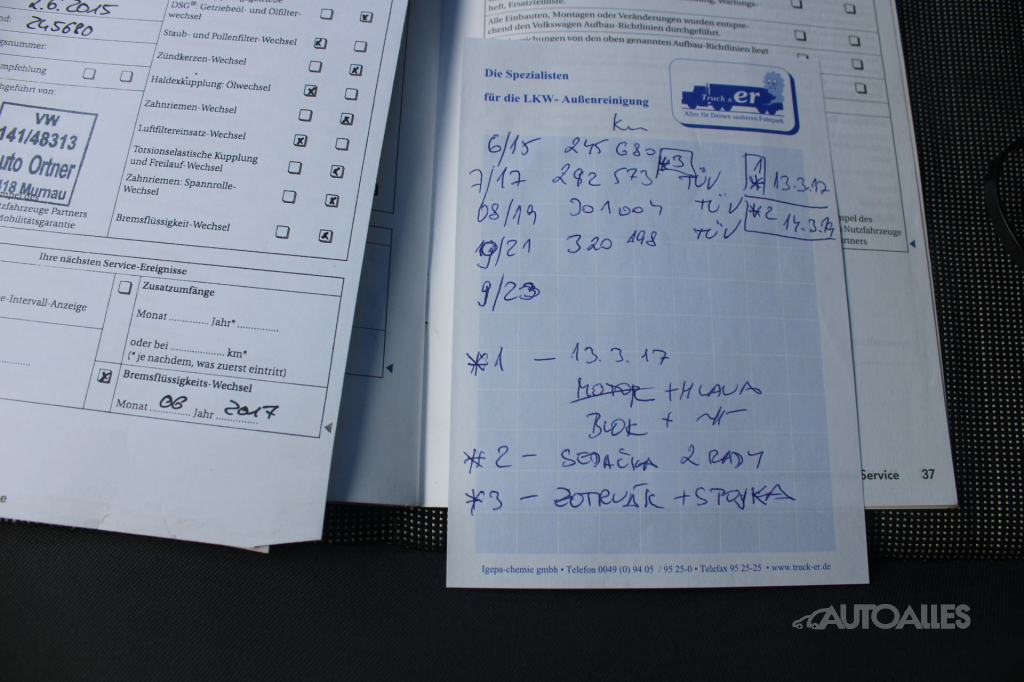 2.6.2015
245680
gsnummer:
mpfehlung
hgeführt von:
VW
141/48313
uto Ortner
418 Murnau
zfahrzeuge Partners
Mobilitätsgarantie
DSG®: Getriebeöl- und Ölfilter-
wechsel
Staub- und Pollenfilter-Wechsel
Zündkerzen-Wechsel
Haldexkupplung: Ölwechsel
Zahnriemen-Wechsel
Luftfiltereinsatz-Wechsel
Torsionselastische Kupplung
und Freilauf-Wechsel
Zahnriemen: Spannrolle-
Wechsel
Bremsflüssigkeit-Wechsel
Ihre nächsten Service-Ereignisse
e-Intervall-Anzeige
Zusatzumfänge
Monat .............. Jahr* ..............
oder bei .................. km*
(* je nachdem, was zuerst eintritt)
Bremsflüssigkeits-Wechsel
Monat 06 Jahr 2017
e
heft, Ersatzteilliste.
Alle Einbauten, Montagen oder Veränderungen wurden entspre-
chend den Volkswagen Aufbau-Richtlinien durchgeführt.
von den oben genannten Aufbau-Richtlinien liegt
mpel des
Nutzfahrzeuge
rtners
Service 37
Die Spezialisten
für die LKW- Außenreinigung
Truck & er
Alles für Deinen sauberen Fuhrpark
Km
6/15 245 680 *3
7/17 282 573 TÜV
08/19 301004 TÜV
9/21 320 198 TÜV
9/23
1
* 13.3.17
*2
14.3.19
*1 – 13.3.17
MOTOR + HLAVA
BLOK +
*2 – SEDAČKA 2 RADY
*3 – ZOTRVÁK + SPOJKA
Igepa-chemie gmbh • Telefon 0049 (0) 94 05 / 95 25-0 • Telefax 95 25-25 • www.truck-er.de
AUTOALLES